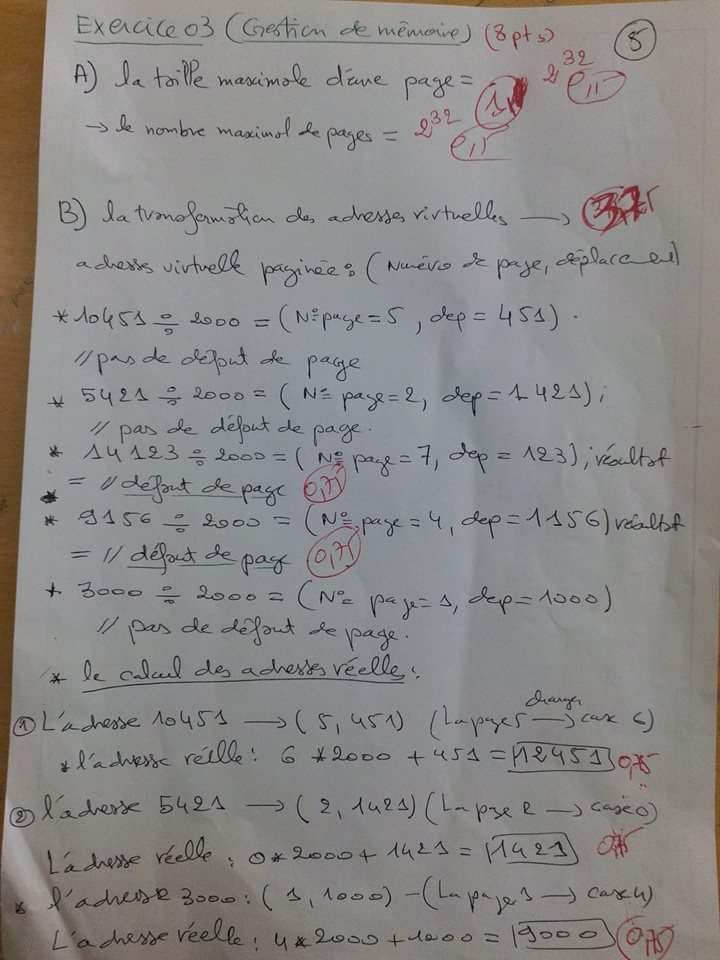 Exercice 03 (Gestion de mémoire) (8 pts) 8
A) la taille maximale d'une page = 2^32
→ le nombre maximal de pages = 2^32
B) la transformation des adresses virtuelles →
adresse virtuelle paginée : (Numéro de page, déplacement)
* 10451 ÷ 2000 = (N° page = 5, dep = 451).
// pas de défaut de page
* 5421 ÷ 2000 = (N° page = 2, dep = 1421);
// pas de défaut de page.
* 14123 ÷ 2000 = (N° page = 7, dep = 123); résultat
= // défaut de page 0,75
* 9156 ÷ 2000 = (N° page = 4, dep = 1156) résultat
= // défaut de page 0,75
* 3000 ÷ 2000 = (N° page = 1, dep = 1000)
// pas de défaut de page.
* le calcul des adresses réelles :
① L'adresse 10451 → (5, 451) (La page 5 → case 6)
* l'adresse réelle : 6 * 2000 + 451 = 12451 0,75
② l'adresse 5421 → (2, 1421) (La page 2 → case 0)
L'adresse réelle : 0 * 2000 + 1421 = 1421 0,75
* l'adresse 3000 : (1, 1000) - (La page 1 → case 4)
L'adresse réelle : 4 * 2000 + 1000 = 9000 0,75